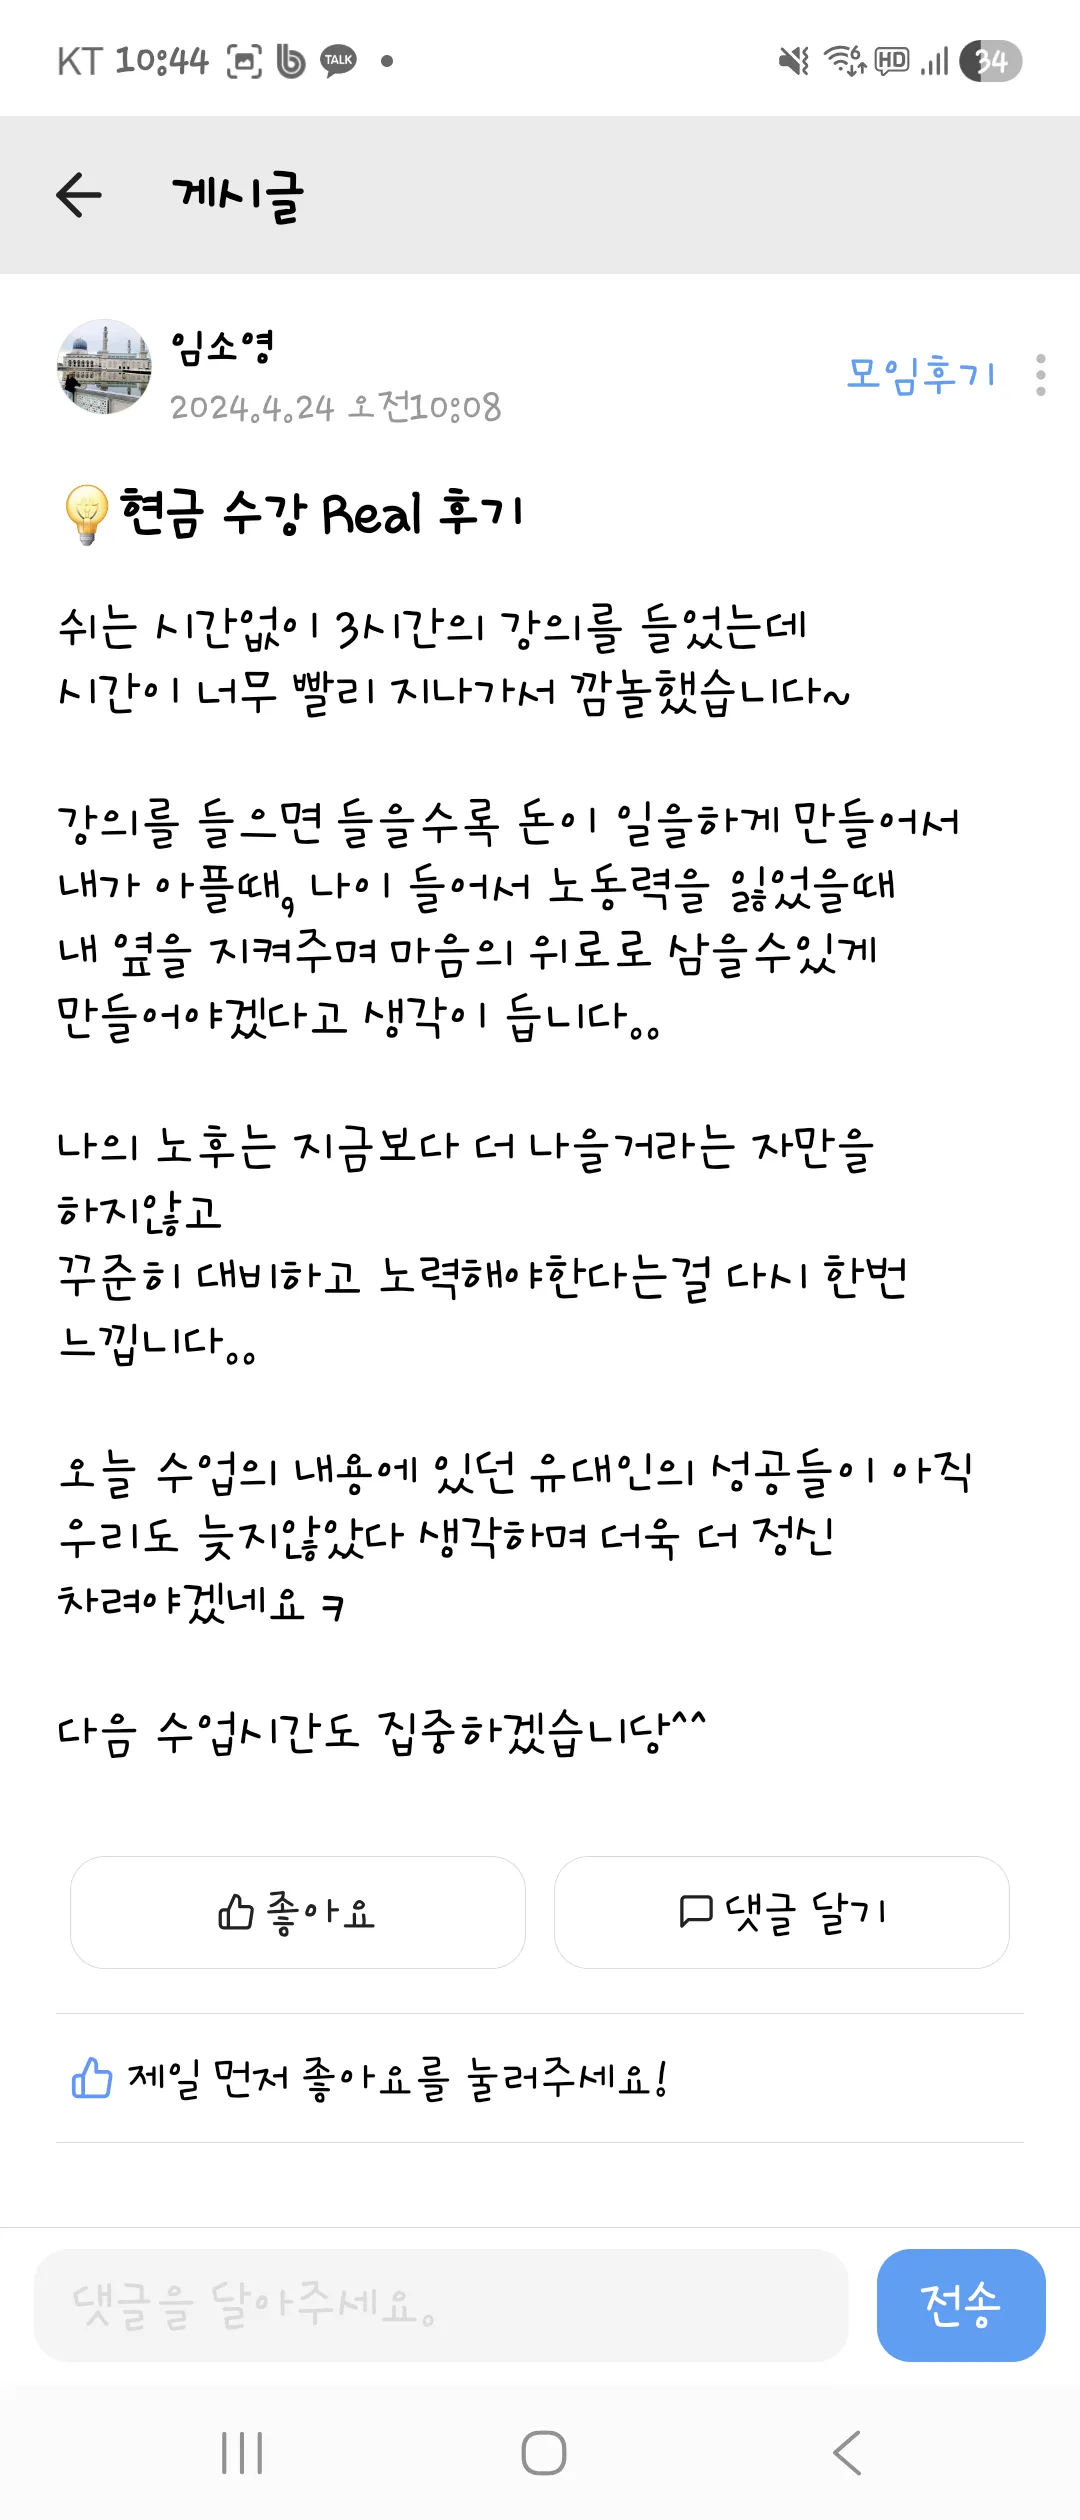 KT 10:44 TALK 6 HD 34
게시글
임소영
2024.4.24 오전10:08
모임후기
💡현금 수강 Real 후기
쉬는 시간없이 3시간의 강의를 들었는데
시간이 너무 빨리 지나가서 깜놀했습니다~
강의를 들으면 들을수록 돈이 일을하게 만들어서
내가 아플때, 나이 들어서 노동력을 잃었을때
내 옆을 지켜주며 마음의 위로로 삼을수있게
만들어야겠다고 생각이 듭니다..
나의 노후는 지금보다 더 나을거라는 자만을
하지않고
꾸준히 대비하고 노력해야한다는걸 다시 한번
느낍니다..
오늘 수업의 내용에 있던 유대인의 성공들이 아직
우리도 늦지않았다 생각하며 더욱 더 정신
차려야겠네요 ㅋ
다음 수업시간도 집중하겠습니당^^
좋아요
댓글 달기
제일 먼저 좋아요를 눌러주세요!
댓글을 달아주세요.
전송